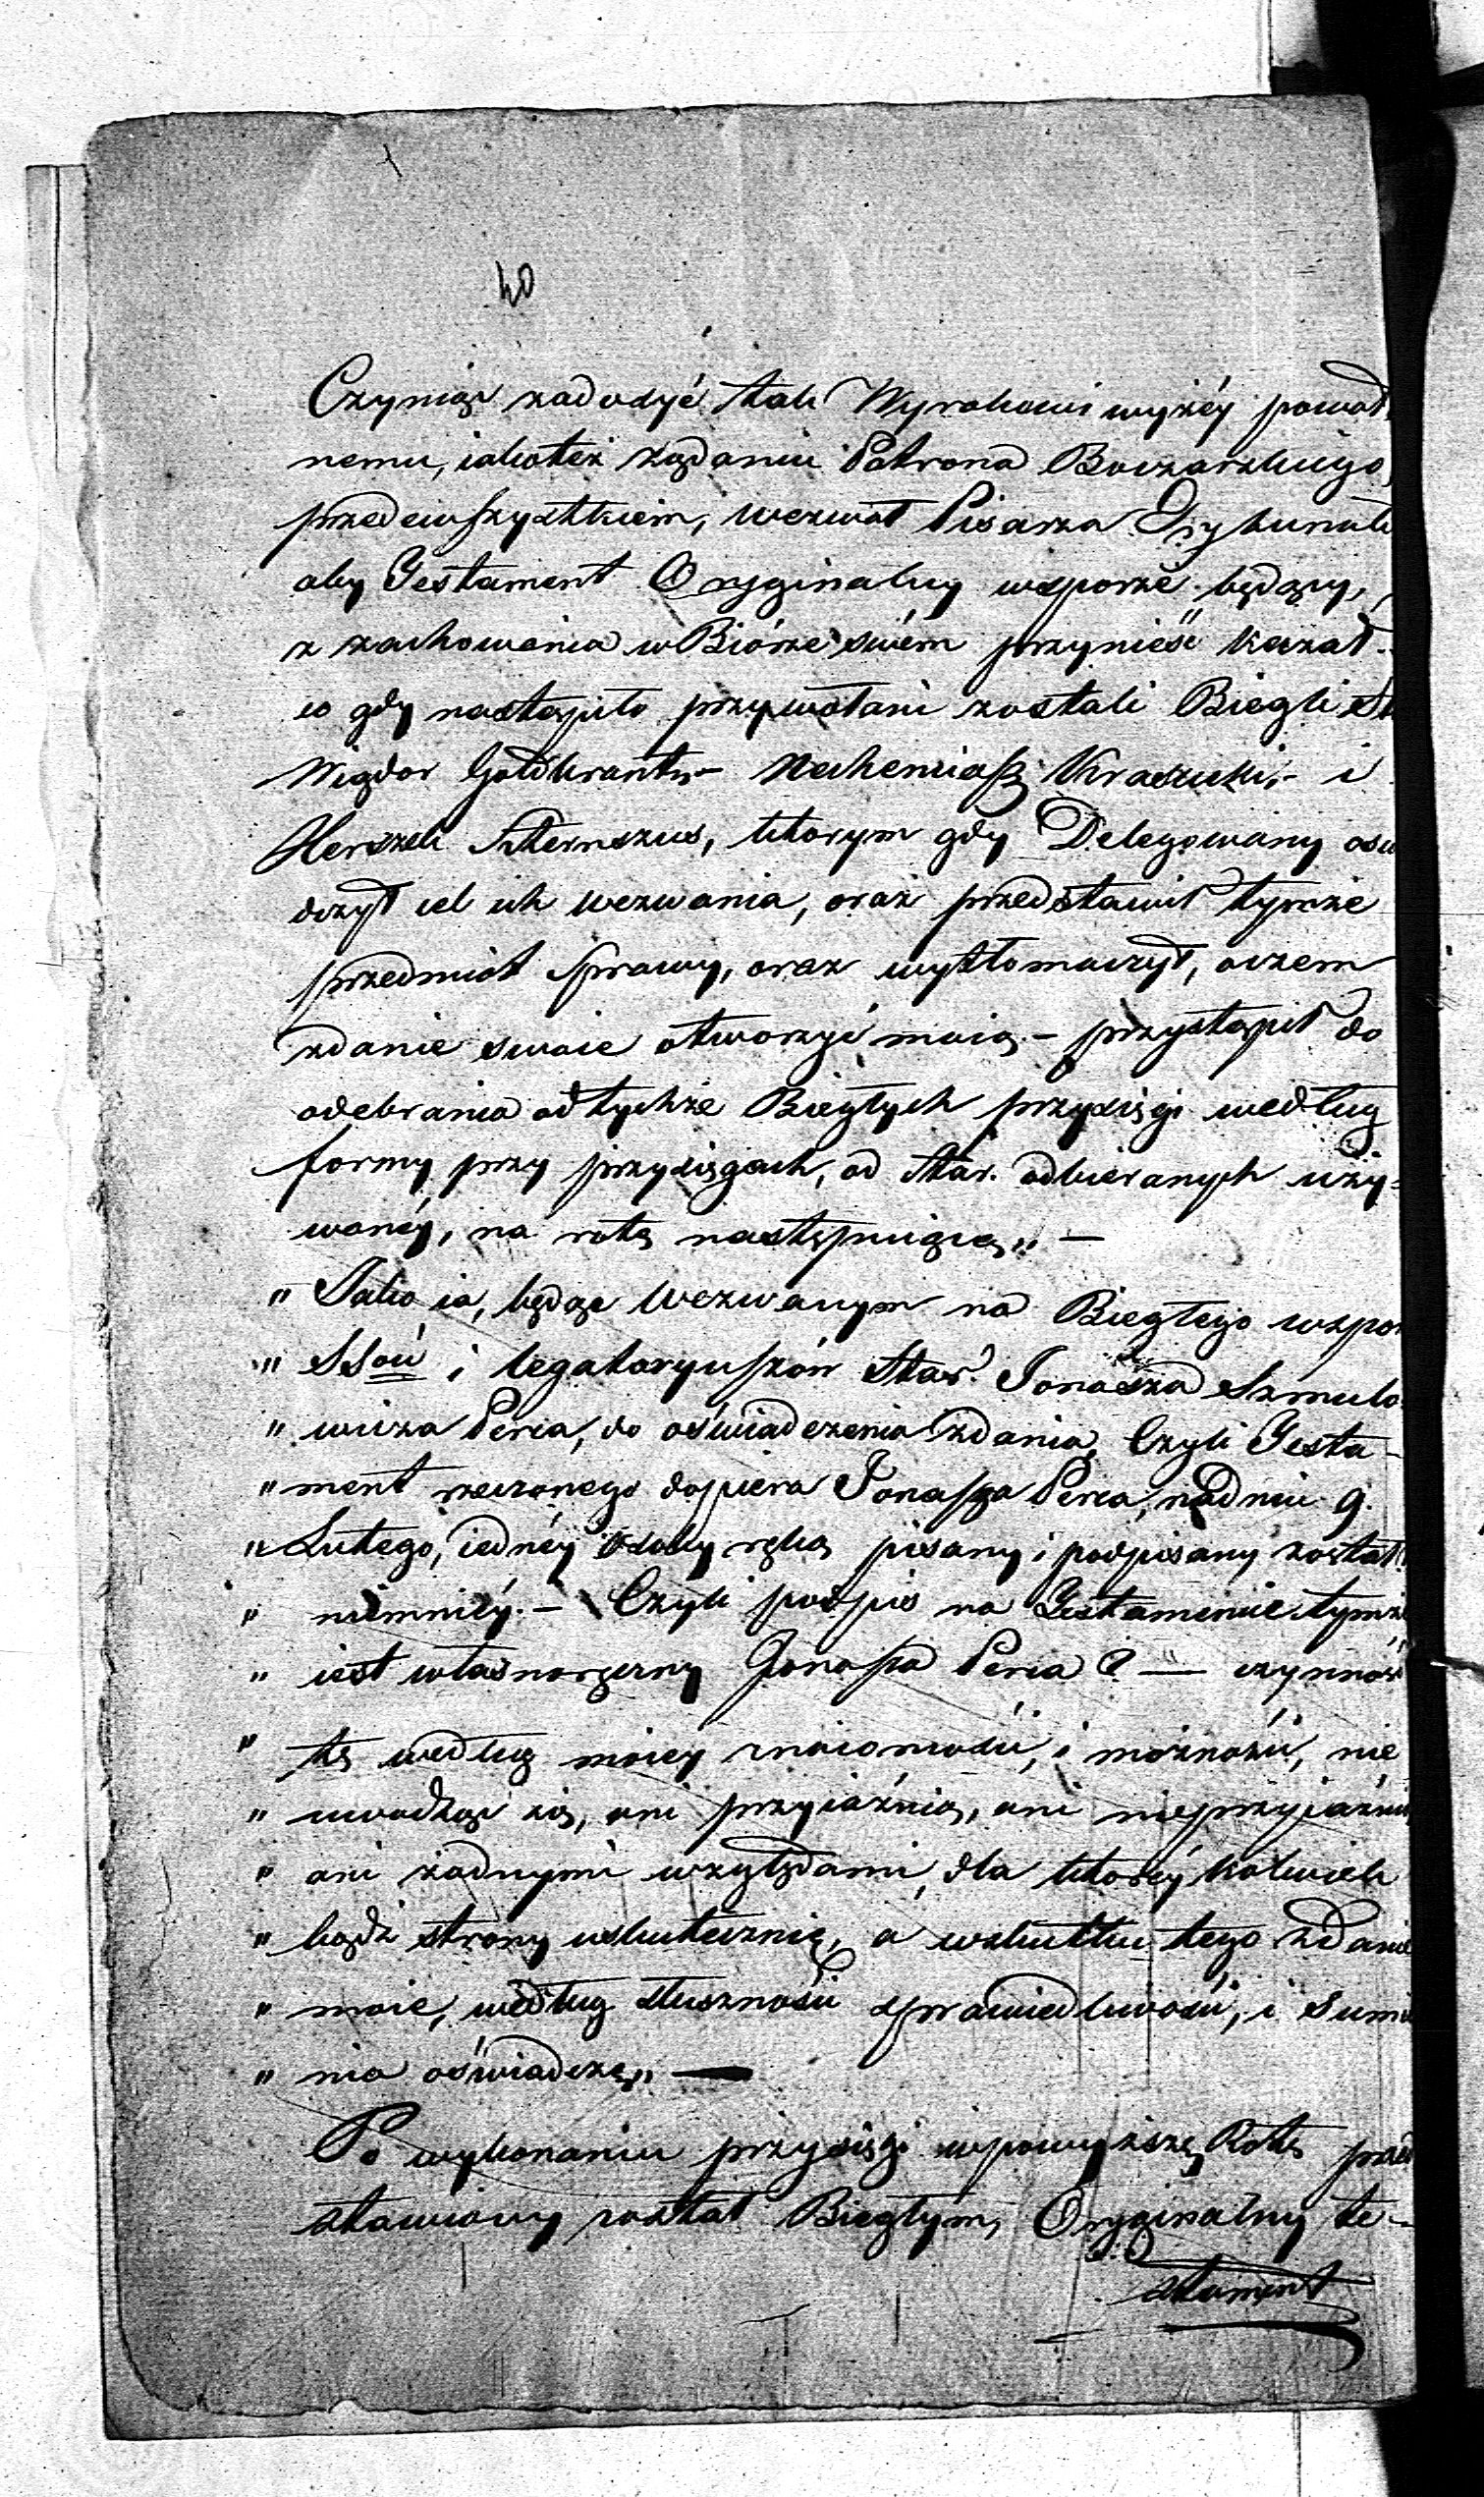 40
Czyniąc zadosyć tak Wyrokowi wyżéy powoł
nemu, iakoteż żądaniu Patrona Boczarskiego,
przedewszystkiem, wezwał Pisarza Trybunału
aby Testament Oryginalny wsporze będący,
z zachowania w Biórze swém przynieść kazał.
co gdy nastąpiło przywołani zostali Biegli St
Wigdor Goldkrantz – Nachemiasz Kraszucki, – i
Herszek Szternszus, którym gdy Delegowany osw
dczył cel ich wezwania, oraz przedstawił tymże
przedmiot sprawy, oraz wytłomaczył, oczem
zdanie swoie otworzyć maią – przystąpił do
odebrania od tychże Biegłych przysięgi według
formy przy przysięgach, od Star. odbieranych uży-
wanéy, na rotę następuiącą„ –
„ Jako ia, będąc wezwanym na Biegłego wspor
„ SSów i legataryuszów Star. Jonasza Szmulo
„ wicza Perca, do oświadczenia zdania, Czyli Testa-
„ ment rzeczonego dopiero Jonasza Perca, nadniu 9.
„ Lutego, iednéy osoby ręką pisany i podpisany został
„ niemniéy. – Czyli podpis na Testamencie tymże
„ iest własnoręczny Jonasza Perca? — czynność
„ tę według moiéy znaiomości, i możności, nie
„ uwodząc się, ani przyiaźnią, ani nieprzyiaźni
„ ani żadnymi względami, dla któréy kolwiek
„ bądź strony uskutecznię, a wskutku tego zdanie
„ moie, według słuszności sprawiedliwości, i Sumi
„ nia oświadczę„ —
Po wykonaniu przysięgi wpowyższą Rotę przed
stawiony został Biegłym, Oryginalny te-
stament